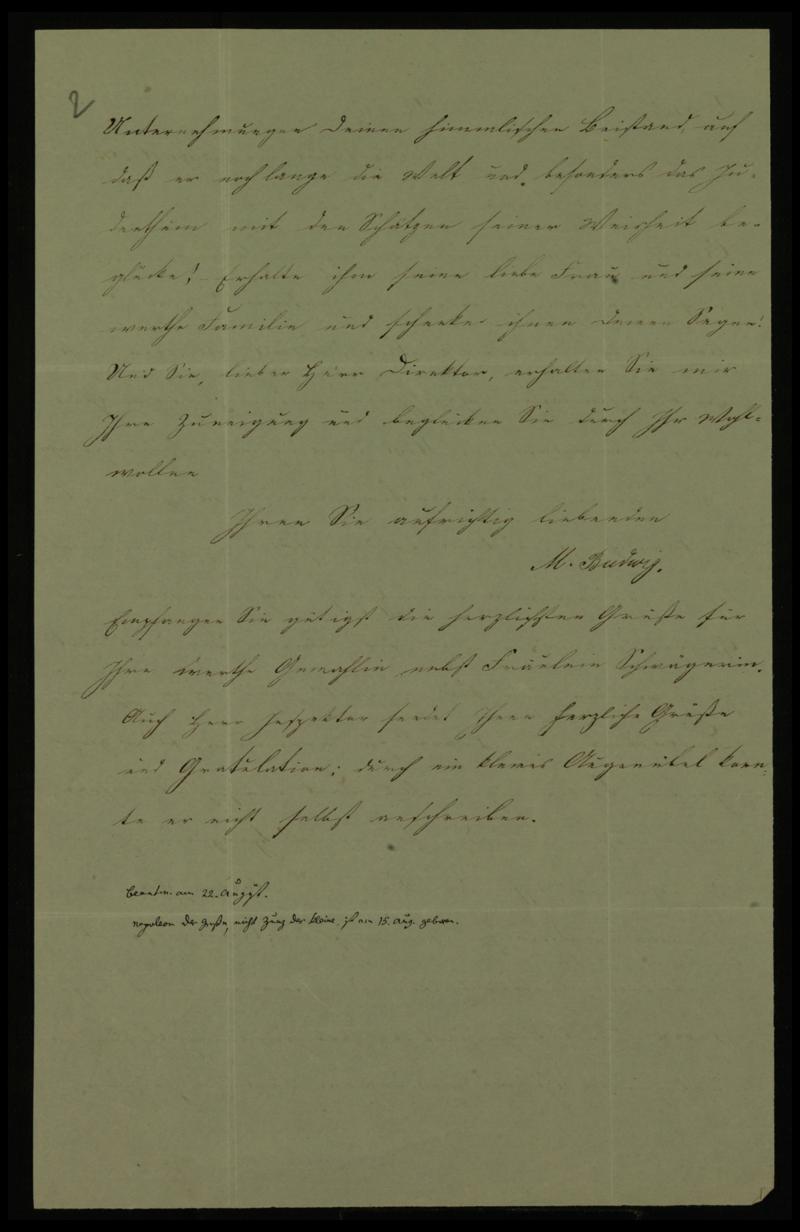 2
Unternehmungen Deinen himmlischen Beistand auf
daß er noch lange die Welt und besonders das Ju-
denthum mit den Schätzen seiner Weisheit be-
glücke! Erhalte ihm seine liebe Frau und seine
werthe Familie und schenke ihnen Deinen Segen!
Und Sie, lieber Herr Direktor, erhalten Sie mir
Ihre Zuneigung und beglücken Sie durch Ihr Wohl-
wollen
Ihren Sie aufrichtig liebenden
M. Budwig.
Empfangen Sie gütigst die herzlichsten Grüße für
Ihre werthe Gemahlin nebst Fräulein Schwägerin.
Auch Herr Inspektor sendet Ihnen herzliche Grüße
und Gratulation; durch ein kleines Augenübel konn-
te er nicht selbst anschreiben.
beantw. am 22. August.
Napoleon der Große, nicht der kleine ist am 15. Aug. geboren.